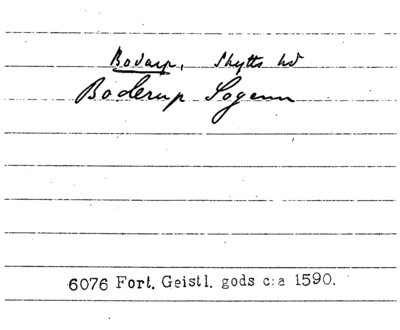 Bodarp, Skytts hd
Boderup Sogenn
6076 Fort. Geistl. gods c:a 1590.